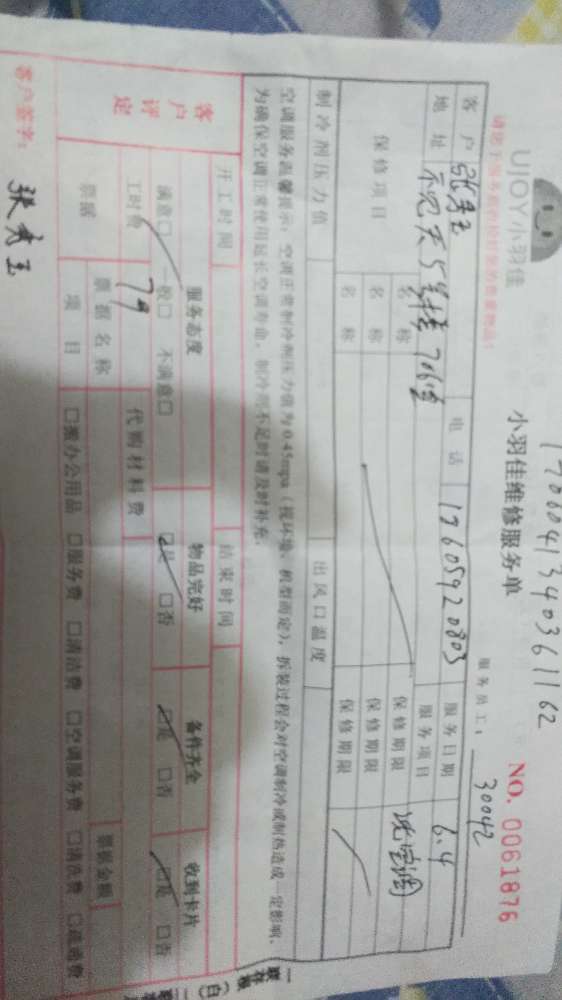 1706041340361162
UJOY小羽佳
小羽佳维修服务单
NO. 0061876
服务员工: 30042
客户 张秀玉 电话 13605920803 服务日期 6.4
地址 706室 服务项目 洗空调
保修项目 名称 保修期限
名称 保修期限
名称 保修期限
制冷剂压力值 出风口温度
空调服务温馨提示:空调正常制冷剂压力值为0.45mpa(视环境、机型而定),拆装过程会对空调制冷或制热造成一定影响,
为确保空调正常使用延长空调寿命,制冷剂不足时请及时补充。
开工时间 结束时间
客户评定 服务态度 物品完好 备件齐全 收到卡片
满意□ 一般□ 不满意□ □是 □否 □是 □否 □是 □否
工时费 79 代购材料费
票据 票据名称 票据金额
项目 □搬办公用品 □服务费 □清洁费 □空调服务费 □清洗费 □疏通费
客户签字: 张秀玉